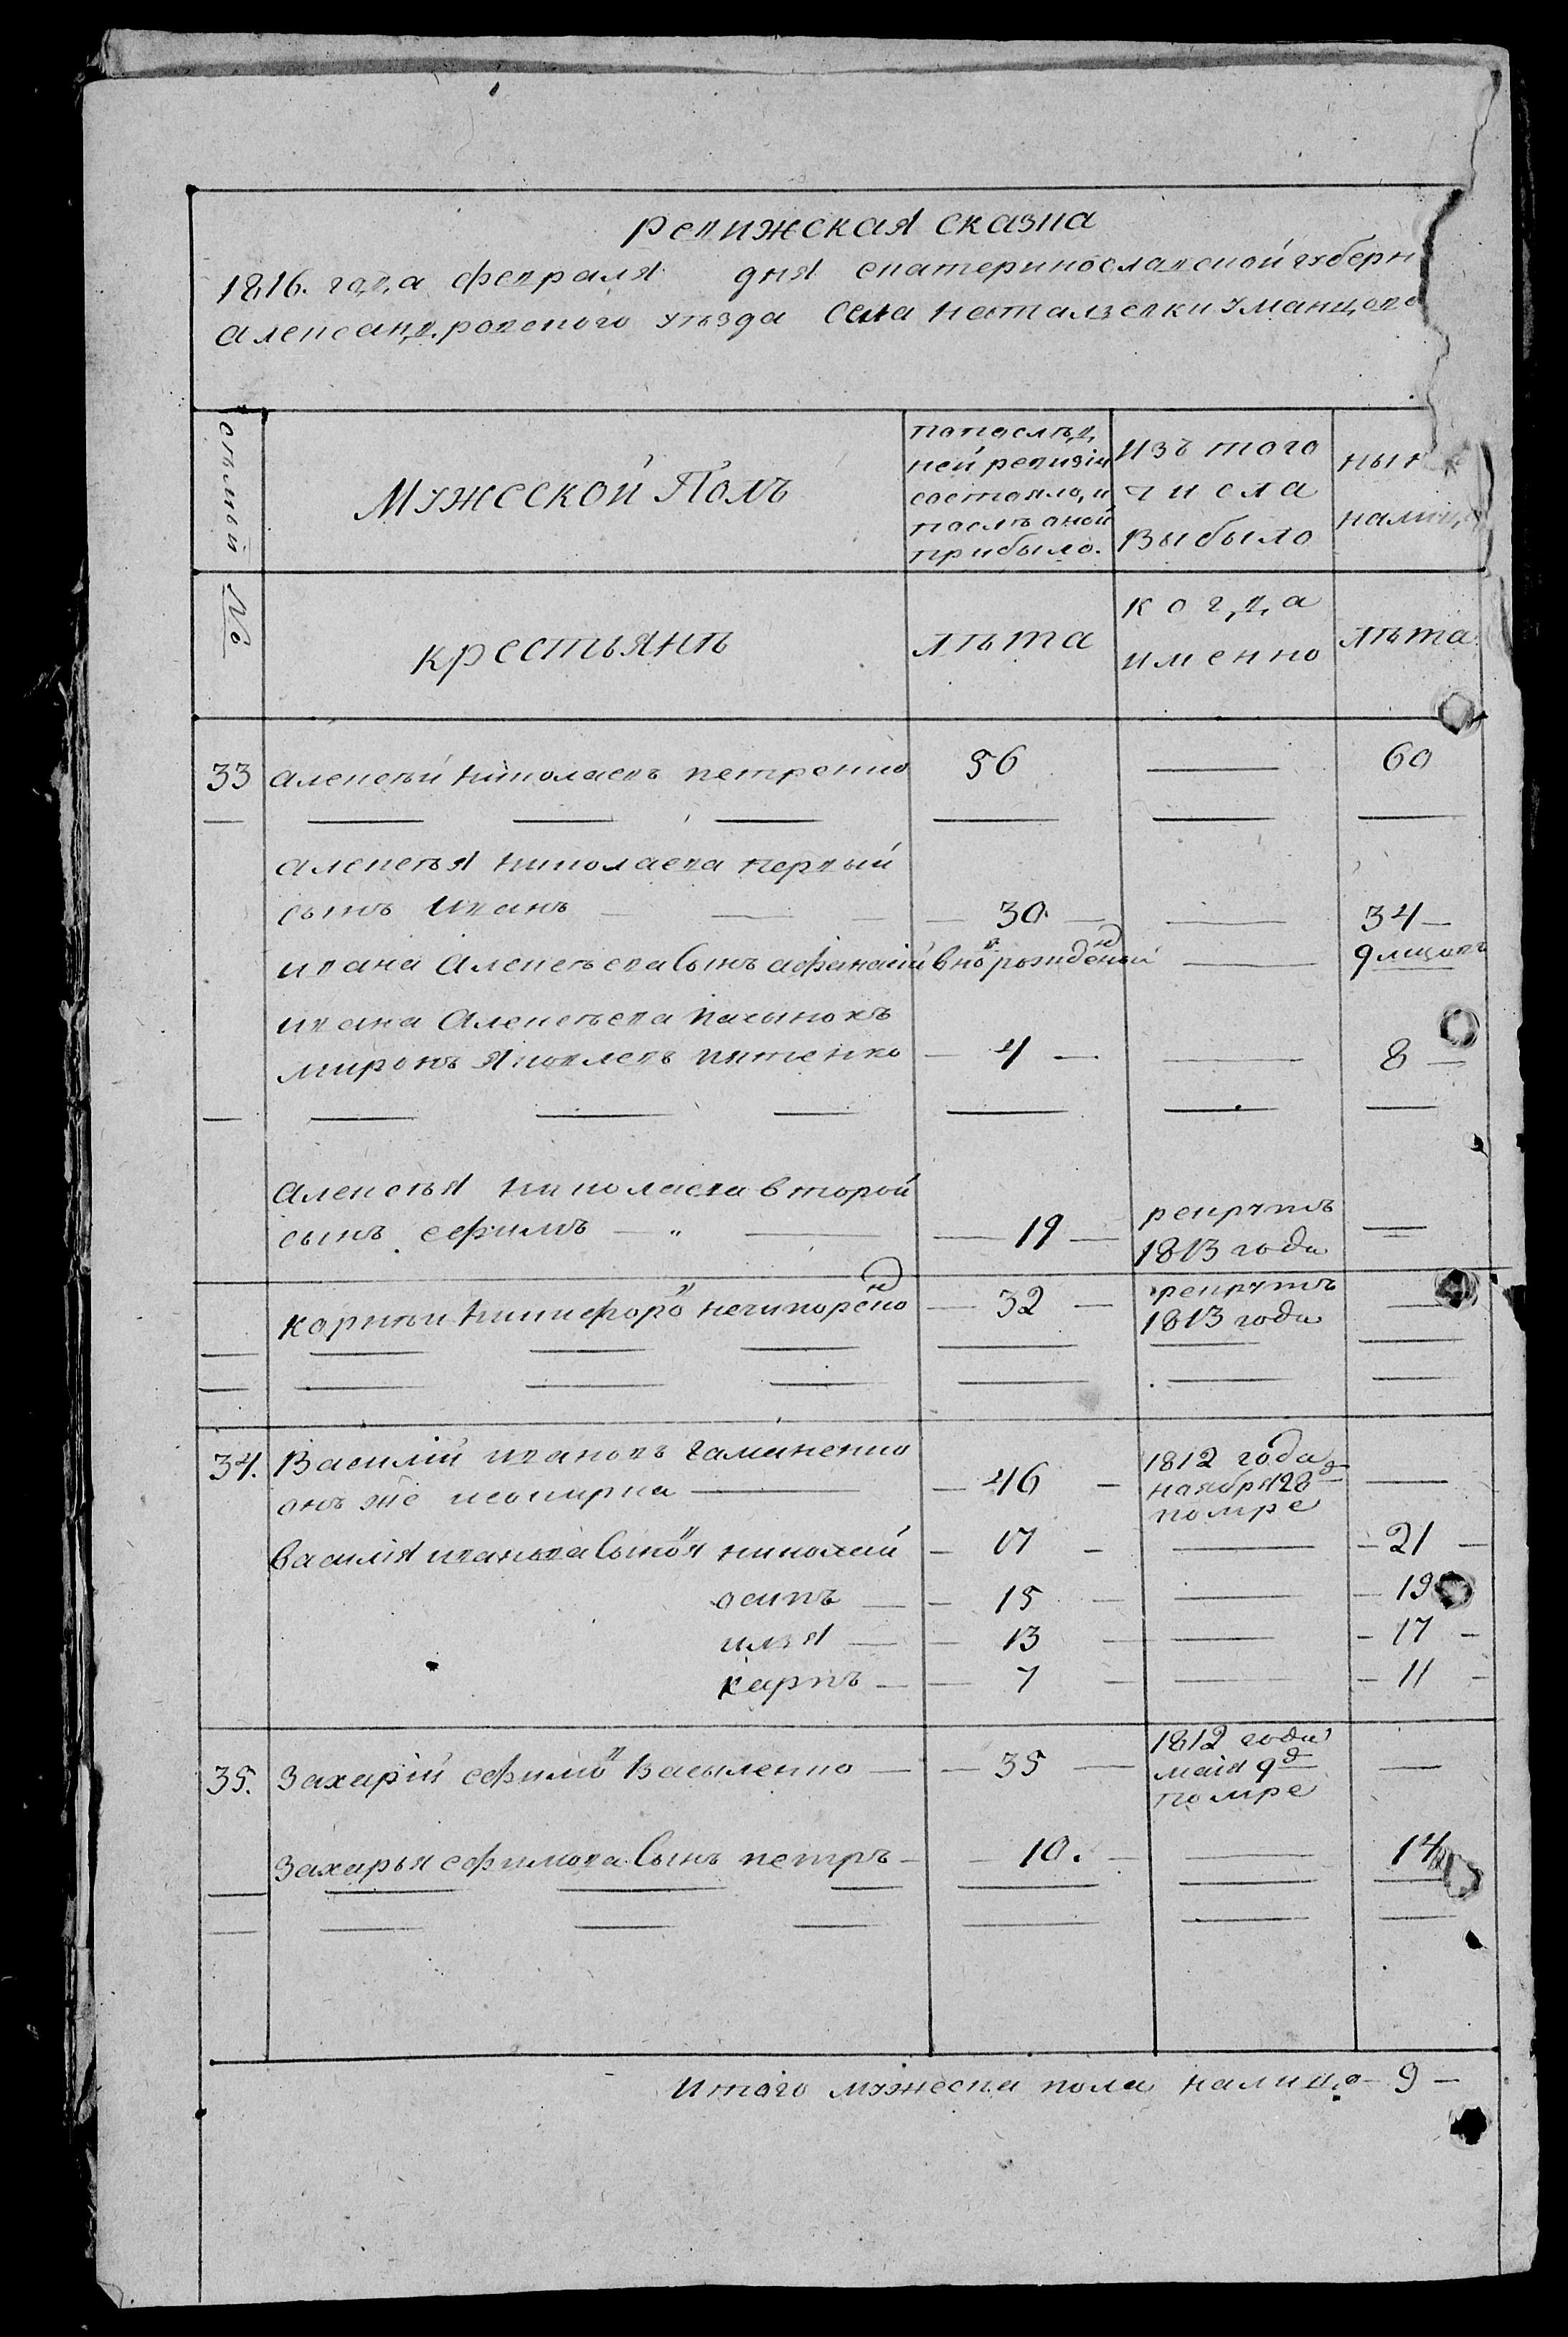 Ревижская сказка
1816. года февраля дня екатеринославской губерн
александровского уезда села наталъевки уманцово
семьи
Мужеской Полъ
попослѣд
ней ревизіи
состояло, и
послѣ оной
прибыло.
изъ того
числа
выбыло
нын
налиц
№
крестьянъ
лѣта
когда
именно
лѣта
33 алексѣй николаевъ петренко 56 — 60
алексѣя николаева первый
сынъ иванъ — 30 — — 34 —
ивана алексѣева сынъ афанасий вновь рожденый — 9 мцовъ
ивана алексѣева пасынокъ
миронъ яковлевъ — 4 — — 8 —
алексѣя николаева второй
сынъ ефимъ — 19 — рекрутъ
1813 года —
корнѣй никифоровъ нечипоренко — 32 — рекрутъ
1813 года —
34. Василий ивановъ
онъ же — 46 — 1812 года
ноября 28д
помре —
василія иванова сыновя николай — 17 — — 21 —
осипъ — 15 — — 19
илья — 13 — — 17 —
карпъ — 7 — — 11 —
35. Захарій ефимовъ Васыленко — 35 — 1812 года
маія 9д
помре —
Захарья ефимова сынъ петръ — 10. — — 14
Итого мужеска пола налицо — 9 —